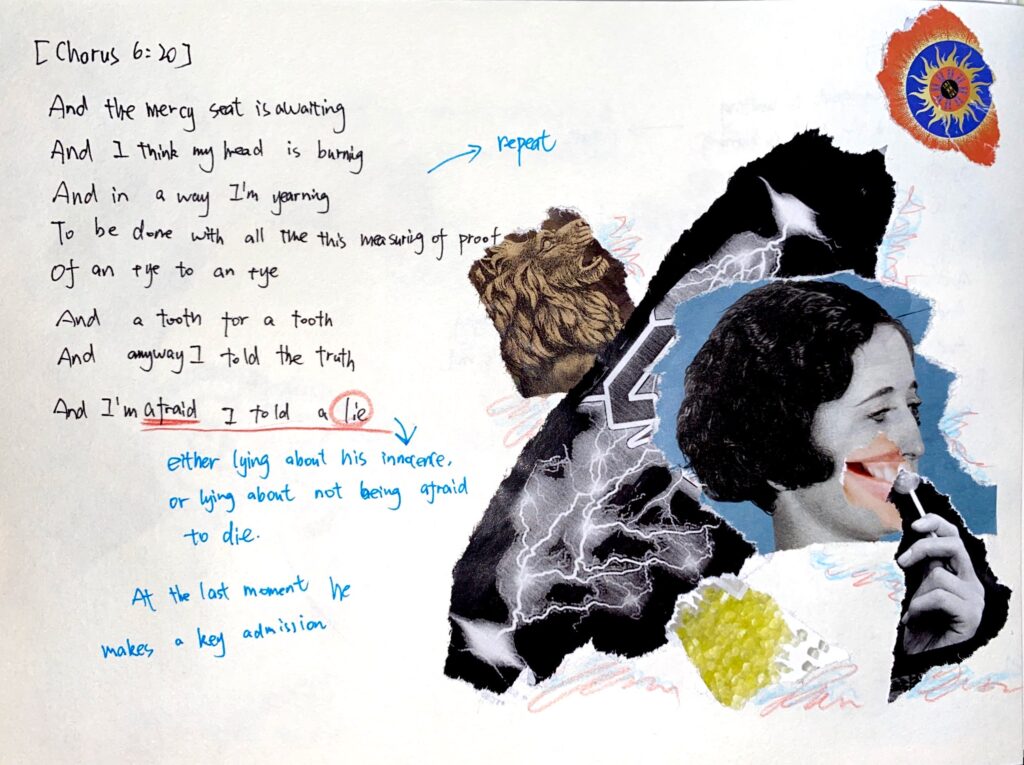 [Chorus 6:20]
And the mercy seat is awaiting
And I think my head is burnig
repeat
And in a way I'm yearning
To be done with all the this measuring of proof
Of an eye to an eye
And a tooth for a tooth
And anyway I told the truth
And I'm afraid I told a lie
either lying about his innocence,
or lying about not being afraid
to die.
At the last moment he
makes a key admission